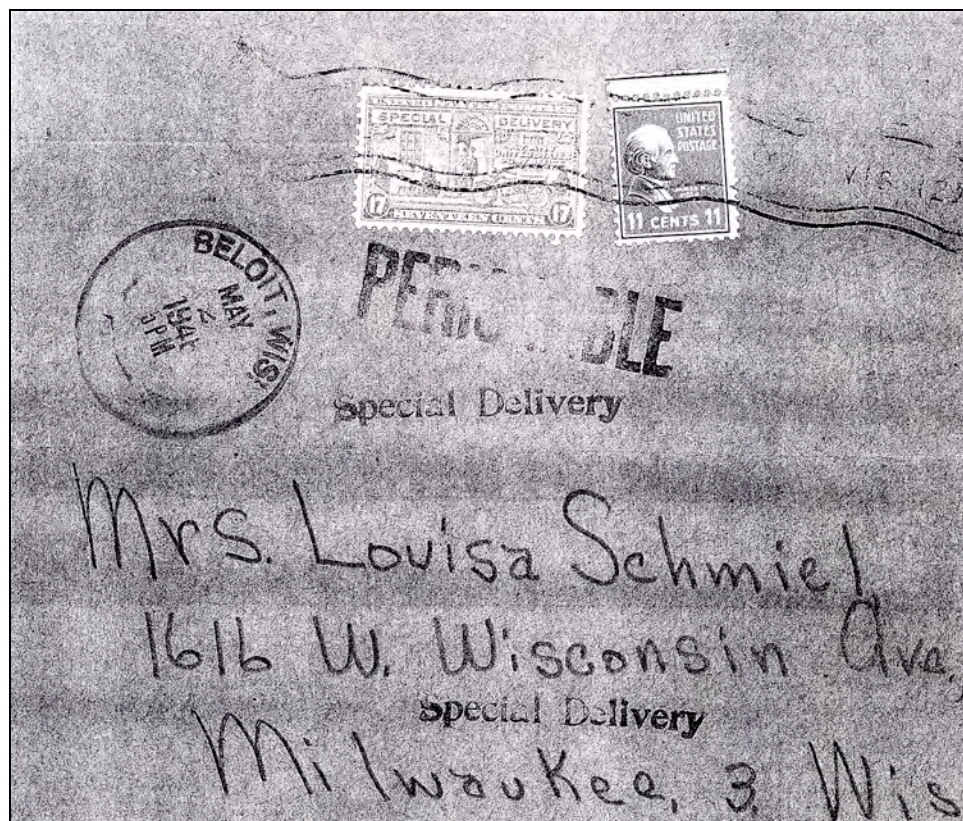 SPECIAL DELIVERY
17 SEVENTEEN CENTS 17
UNITED
STATES
POSTAGE
11 CENTS 11
BELOIT, WIS.
MAY
PM
PERISHABLE
Special Delivery
Mrs. Louisa Schmiel
1616 W. Wisconsin Ave,
Special Delivery
Milwaukee, 3. Wis